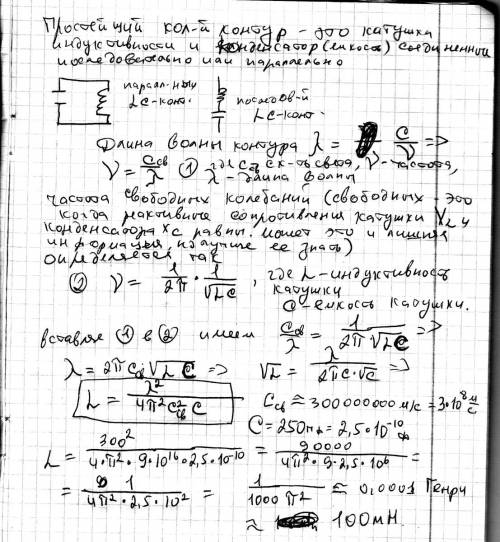 Простейший кол-й контур - это катушка
индуктивности и конденсатор (емкость) соединенной
последовательно или параллельно
параллельный
LC-конт.
последов-й
LC-конт.
Длина волны контура λ = c/ν =>
ν = Cсв/λ ① где Cсв ск-ть света, ν-частота,
λ - длина волны
частота свободных колебаний (свободных - это
когда реактивные сопротивления катушки XL и
конденсатора Xc равны. может это и лишняя
информация, но лучше ее знать)
определяется так
② ν = 1/2π · 1/√LC , где L - индуктивность
катушки
C - емкость катушки.
вставляя ① в ② имеем Cсв/λ = 1/2π√LC =>
λ = 2πCсв√LC => √L = λ/2πC·√C =>
L = λ²/4π²C²св C
Cсв ≈ 300000000 м/с = 3·10⁸ м/с
C = 250пк = 2,5·10⁻¹⁰ Ф
L = 300²/4·π²·9·10¹⁶·2,5·10⁻¹⁰ = 90000/4π²·9·2,5·10⁶ =
= 1/4π²·2,5·10² = 1/1000π² ≈ 0,0001 Генри
≈ 100мН